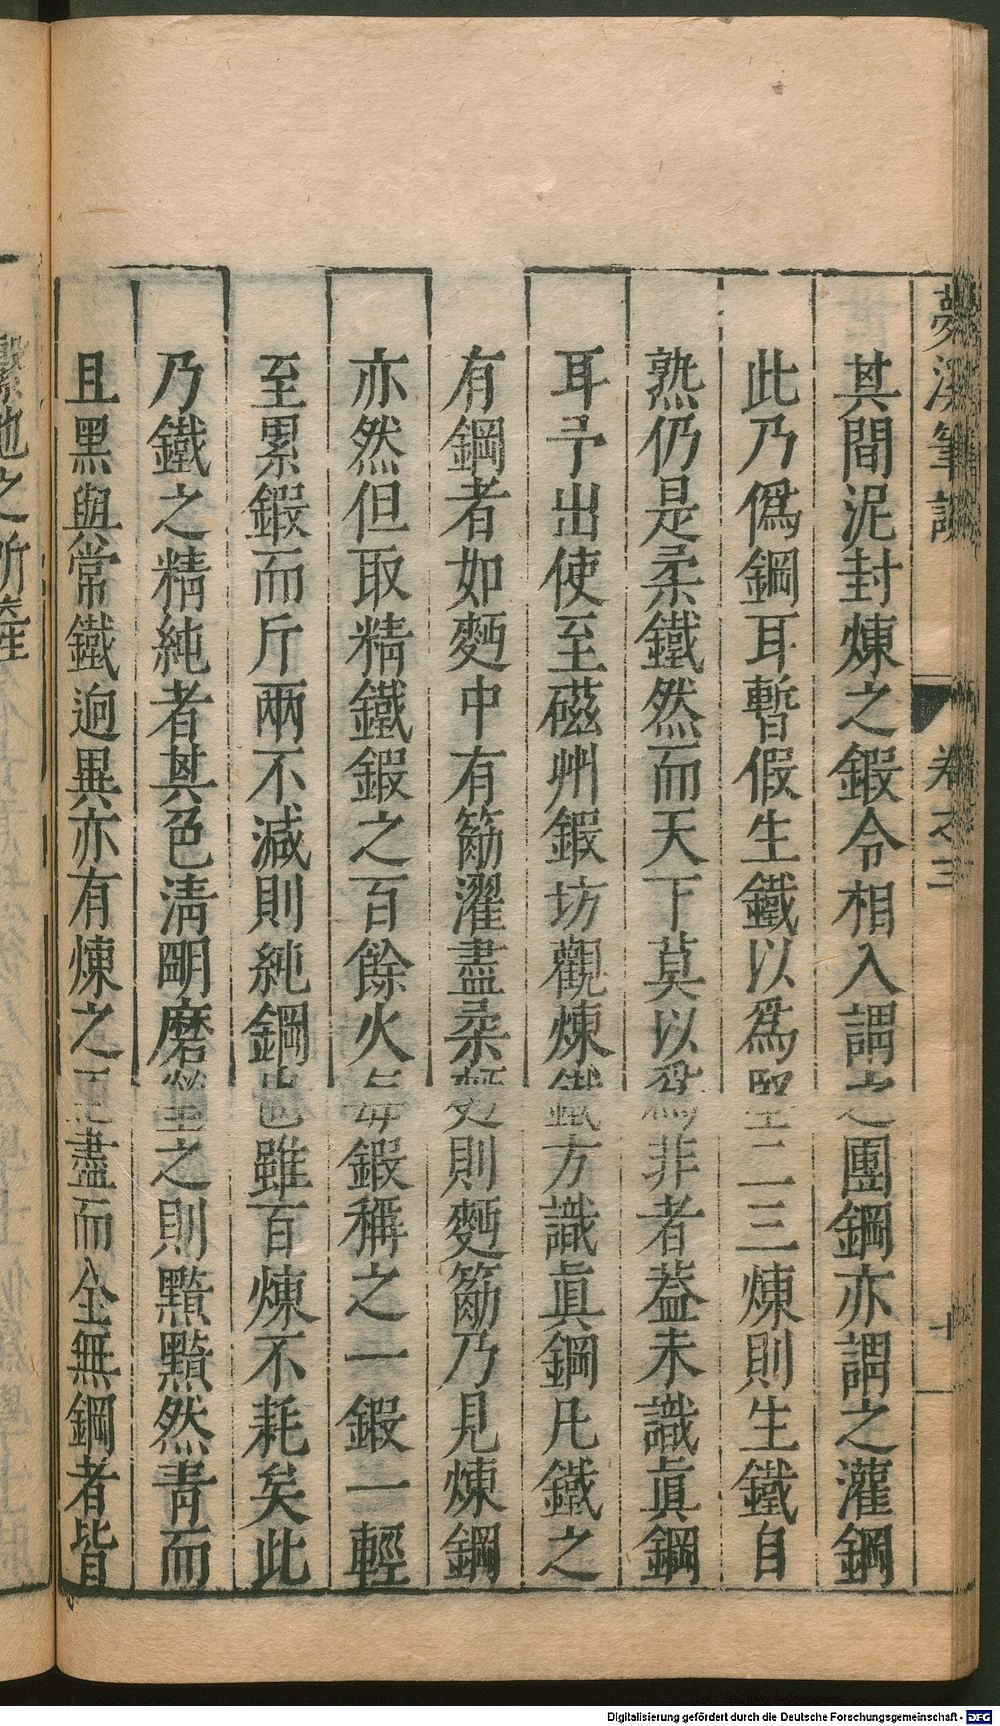 夢溪筆談 卷之三 十
其間泥封煉之鍜令相入謂之團鋼亦謂之灌鋼
此乃僞鋼耳暫假生鐵以爲堅二三煉則生鐵自
熟仍是柔鐵然而天下莫以爲非者葢未識眞鋼
耳予出使至磁州鍜坊觀煉鐵方識眞鋼凡鐵之
有鋼者如麪中有筋濯盡柔麪則麪筋乃見煉鋼
亦然但取精鐵鍜之百餘火每鍜稱之一鍜一輕
至累鍜而斤兩不減則純鋼也雖百煉不耗矣此
乃鐵之精純者其色淸明磨瑩之則黯黯然靑而
且黑與常鐵逈異亦有煉之至盡而全無鋼者皆
繫地之所產
Digitalisierung gefördert durch die Deutsche Forschungsgemeinschaft - DFG